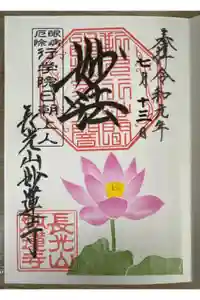 奉拝 令和元年
七月十三日
妙法
眼病
厄除
行学院日朝上人
長光山妙蓮寺
長光山
妙蓮寺